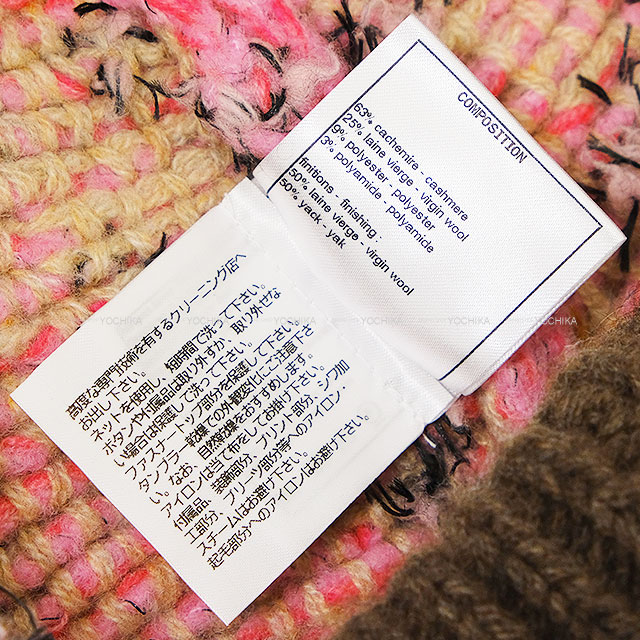 COMPOSITION
63% cachemire - cashmere
25% laine vierge - virgin wool
9% polyester - polyester
3% polyamide - polyamide
finitions - finishing :
50% laine vierge - virgin wool
50% yack - yak
高度な専門技術を有するクリーニング店へ
お出し下さい。
ネットを使用し、短時間で洗って下さい。
ボタンや付属品は取り外すか、取り外せな
い場合は保護して洗って下さい。
ファスナートップ部分を保護して下さい。
タンブラー乾燥での外観変化にご注意下さ
い。なお、自然乾燥をおすすめします。
アイロンは当て布をしてお掛け下さい。
付属品、装飾部分、プリント部分、シワ加
工部分、プリーツ部分等へのアイロン・
スチームはお避け下さい。
起毛部分へのアイロンはお避け下さい。
YOCHIKA YOCHIKA YOCHIKA YOCHIKA YOCHIKA